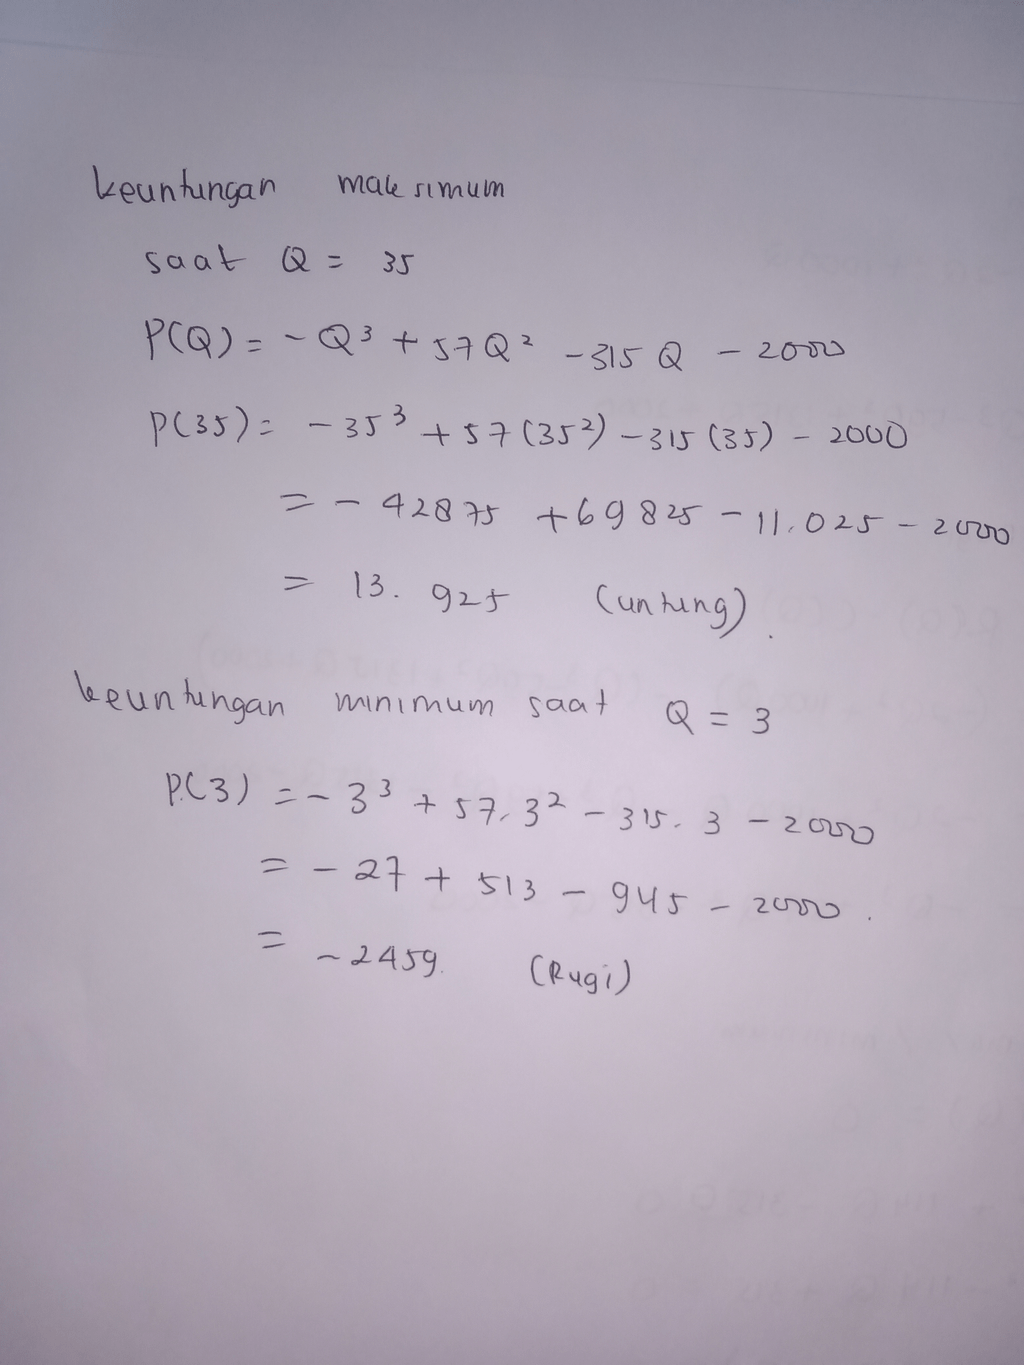 keuntungan maksimum
saat Q = 35
P(Q) = - Q³ + 57Q² - 315 Q - 2000
P(35) = - 35³ + 57 (35²) - 315 (35) - 2000
= - 42875 + 69825 - 11.025 - 2000
= 13.925 (untung).
keuntungan minimum saat Q = 3
P(3) = - 3³ + 57. 3² - 315. 3 - 2000
= - 27 + 513 - 945 - 2000.
= - 2459. (Rugi)